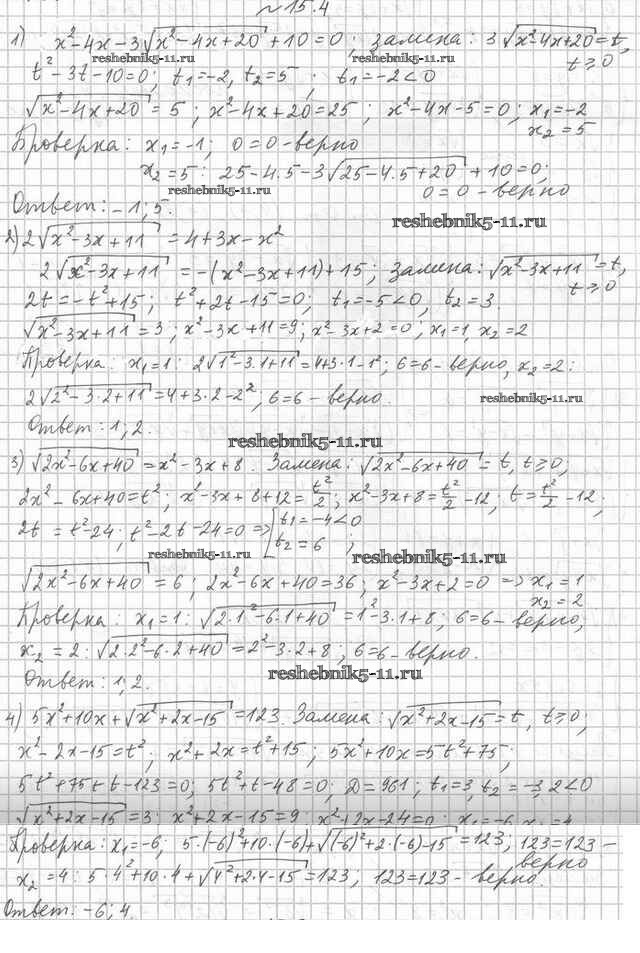 №15.4
1) x²-4x-3√(x²-4x+20)+10=0; замена: 3√(x²4x+20)=t,
reshebnik5-11.ru reshebnik5-11.ru t≥0
t²-3t-10=0; t₁=-2, t₂=5; t₁=-2<0
√(x²-4x+20)=5; x²-4x+20=25; x²-4x-5=0; x₁=-2
x₂=5
Проверка: x₁=-1; 0=0-верно
x₂=5: 25-4.5-3√(25-4.5+20)+10=0;
reshebnik5-11.ru 0=0-верно
Ответ: -1; 5.
reshebnik5-11.ru
2) 2√(x²-3x+11)=4+3x-x²
2√(x²-3x+11)=-(x²-3x+11)+15; замена: √(x²-3x+11)=t,
t≥0
2t=-t²+15; t²+2t-15=0; t₁=-5<0, t₂=3.
√(x²-3x+11)=3; x²-3x+11=9; x²-3x+2=0; x₁=1, x₂=2
Проверка: x₁=1: 2√(1²-3.1+11)=4+3·1-1²; 6=6-верно, x₂=2:
2√(2²-3·2+11)=4+3·2-2²; 6=6-верно.
reshebnik5-11.ru
Ответ: 1; 2.
reshebnik5-11.ru
3) √(2x²-6x+40)=x²-3x+8. Замена: √(2x²-6x+40)=t, t≥0;
2x²-6x+40=t²; x²-3x+8+12=t²/2; x²-3x+8=t²/2-12; t=t²/2-12;
2t=t²-24; t²-2t-24=0 => [t₁=-4<0
t₂=6;
reshebnik5-11.ru reshebnik5-11.ru
√(2x²-6x+40)=6; 2x²-6x+40=36; x²-3x+2=0 => x₁=1
x₂=2
Проверка: x₁=1: √(2·1²-6·1+40)=1²-3·1+8; 6=6-верно;
x₂=2: √(2·2²-6·2+40)=2²-3·2+8; 6=6-верно.
reshebnik5-11.ru
Ответ: 1; 2.
4) 5x²+10x+√(x²+2x-15)=123. Замена: √(x²+2x-15)=t, t≥0;
x²-2x-15=t²; x²+2x=t²+15; 5x²+10x=5t²+75;
5t²+75+t-123=0; 5t²+t-48=0; D=961; t₁=3, t₂=-3,2<0
√(x²+2x-15)=3; x²+2x-15=9; x²+2x-24=0; x₁=-6, x₂=4
Проверка: x₁=-6; 5·(-6)²+10·(-6)+√((-6)²+2·(-6)-15)=123; 123=123-
верно
x₂=4: 5·4²+10·4+√(4²+2·4-15)=123; 123=123-верно.
Ответ: -6; 4.